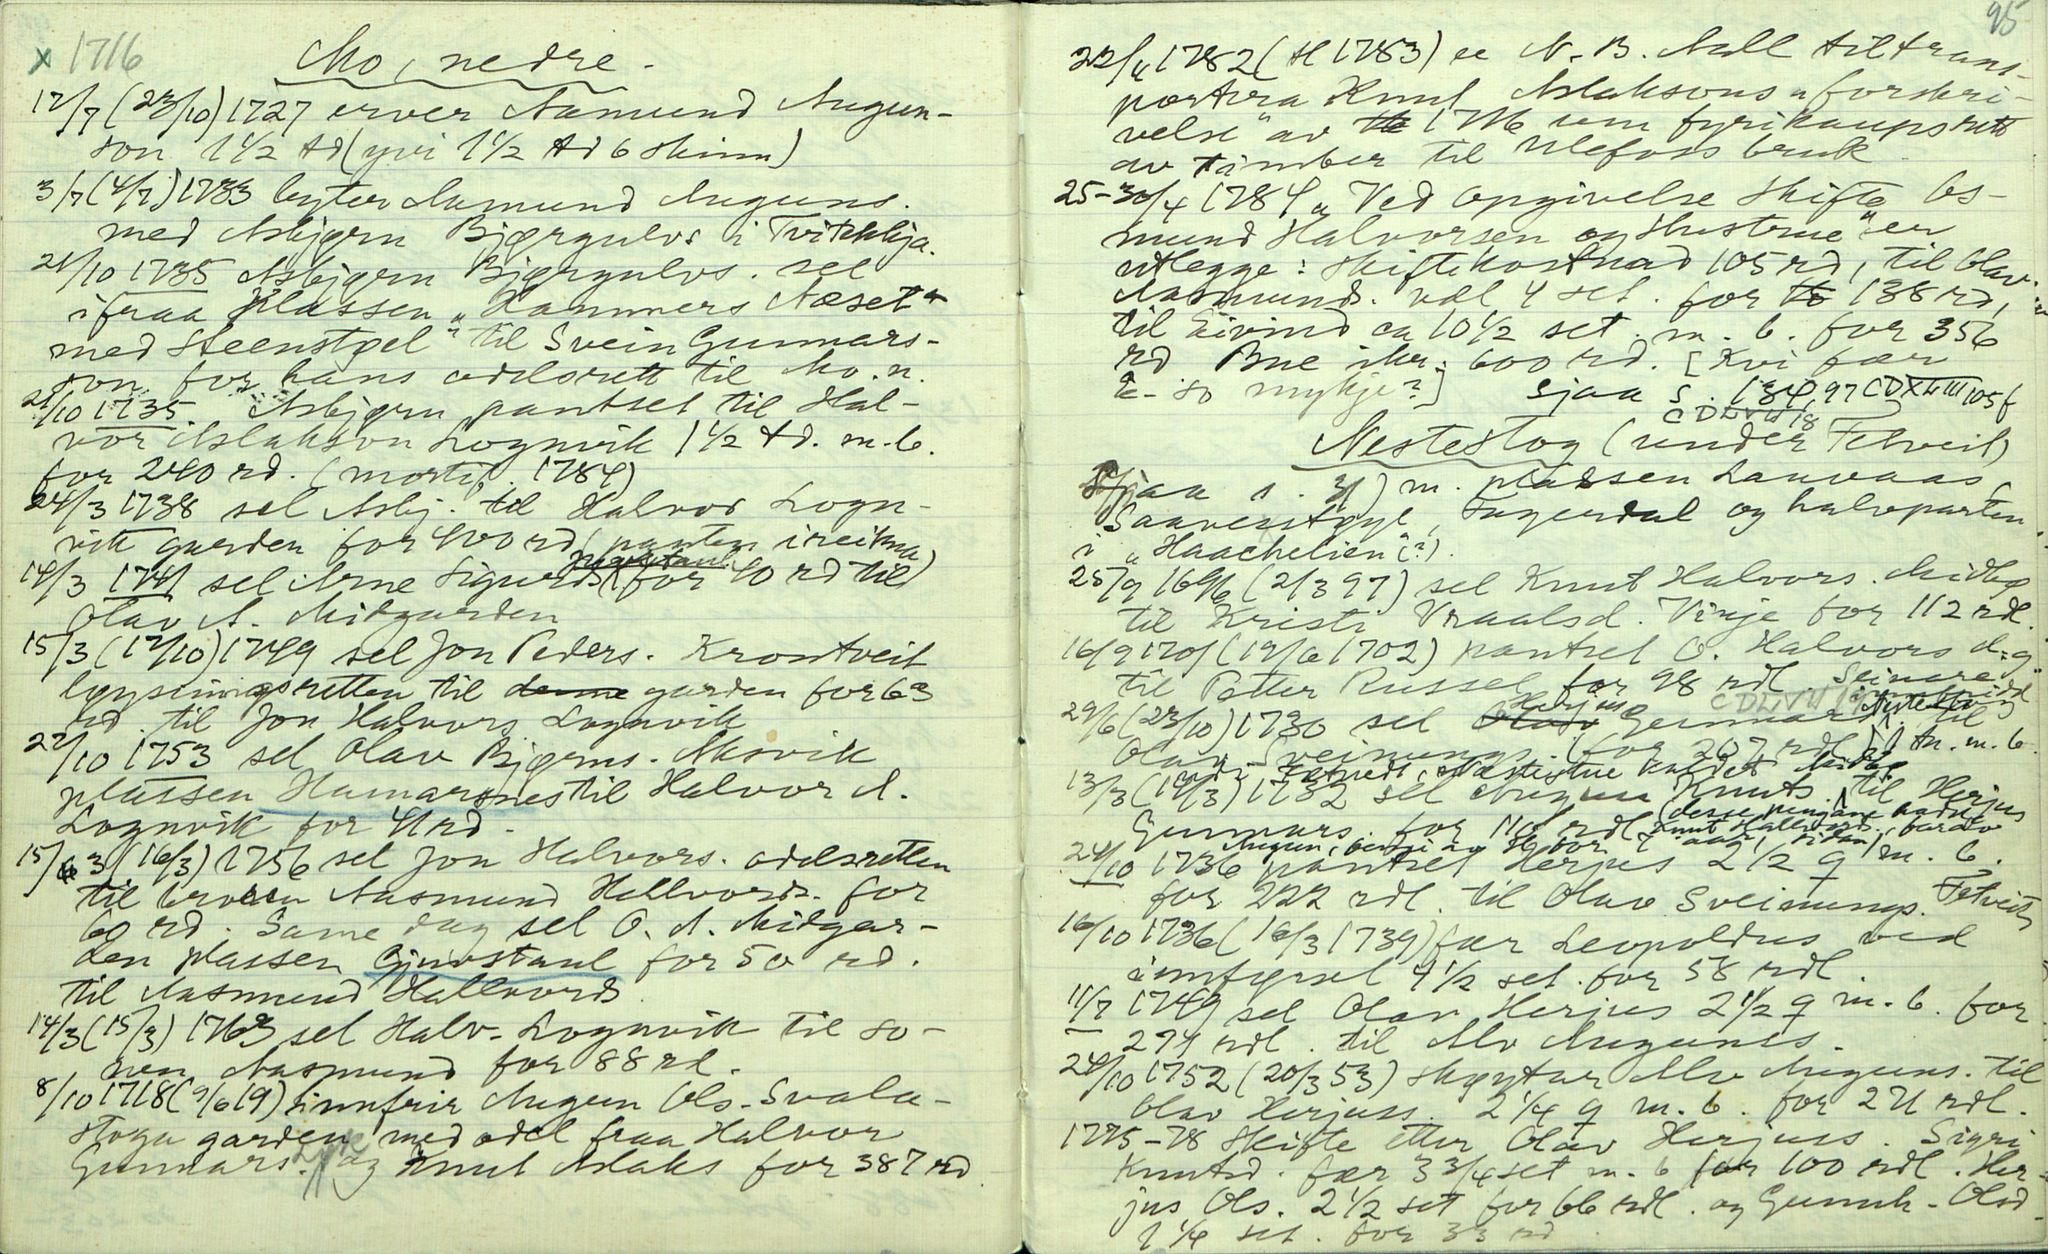 x 1716
Mo, nedre.
17/7 (23/10) 1727 erver Aamund Augun-
son 1 1/2 td (yvi 1 1/2 td 6 skinn)
3/7 (4/7) 1733 byter Aamund Auguns.
med Asbjørn Bjørgulvs i Tvitekkja.
21/10 1735 Asbjørn Bjørgulvs. sel
ifraa plassen "Hammers Næset"
med Steenstøel" til Svein Gunnars-
son for hans odelsrett til Mo. n.
21/10 1735 Asbjørn pantset til Hal-
vor Aslakson Lognvik 1 1/2 td. m. b.
for 240 rd. (mortif. 1784)
24/3 1738 sel Asbj. til Halvor Logn-
vik garden for 400 rd (panten ireikna)
14/3 1741 sel Arne Sigurds for 40 rd til
Olav A. Midgarden
15/3 (17/10) 1749 sel Jon Peders. Krontveit
løysingsretten til denne garden for 63
rd. til Jon Halvors Lognvik
22/10 1753 sel Olav Bjørns. Aasvik
plassen Hamarsnes til Halvor A.
Lognvik for 41 rd.
15/3 (16/3) 1756 sel Jon Halvors. odelsretten
til broren Aasmund Hallvords. for
60 rd. Same dag sel O. A. Midgar-
den plassen Gjuvstaul for 50 rd.
til Aasmund Hallvords
14/3 (15/3) 1763 sel Halv. Lognvik til so-
nen Aasmund for 88 rd.
8/10 1718 (9/6 19) innfrir Augun Ols. Svala-
stoga garden med odel fraa Halvor
Gunnars. og Knut Aslaks for 387 rd
95
22/4 1782 (H 1783) N. B. Aall til trans-
portera Knut Aslaksons "forskri-
velse" av 1776 um fyrikaupsrett
av timber til Ulefoss bruk.
25-30/4 1784 "Ved opgivelse Skifte Os-
mund Halvorsen og Hustrue" er
utlegge: Skiftekostnad 105 rd, til Olav
Aasmunds. vel 4 set. for 138 rd,
til Eivind ca 10 1/2 set. m. b. for 356
rd Bue iker. 600 rd. [Kvi fær
so mykje?] Sjaa s. 134, 97 CDXLIII 105 f
CDLVII 18
Nestestog (under Felveit)
(Sjaa s. 31) m. plassen Lauvaas,
Saaverstøyl, Fagerdal og halvparten
i "Haachelien" (?).
25/9 1696 (2/3 97) sel Knut Halvors. Midbø
til Kristi Vraalsd. Vinje for 112 rdl.
16/9 1701 (19/6 1702) pantset O. Halvors d. g.
til Petter Russel for 98 rdl Seinere
CDLVII 19
29/6 (23/10) 1730 sel Herjus Gunnars til
Olav Sveinungs. for 267 rdl
13/3 (14/3) 1732 sel Augun Knuts. til Herjus
Gunnars. for 110 rdl (desse pengane
24/10 1736 pantset Herjus 2 1/2 q m. b.
for 222 rdl. til Olav Sveinungs. Felveit
16/10 1736 (16/3 1739) fær Leopoldus ved
innførsel 4 1/2 set. for 58 rdl.
11/7 1749 sel Olav Herjus 2 1/2 q m. b. for
274 rdl. til Alv Auguns.
24/10 1752 (20/3 53) skøytar Alv Auguns. til
Olav Herjuss. 2 1/4 q m. b. for 271 rdl.
1775-78 Skifte etter Olav Herjuss. Sigri
Knutsd. fær 3 3/4 set m. b for 100 rdl. Her-
jus Ols. 2 1/2 set for 66 rdl. og Gunnh. Olsd.
1 1/4 set. for 33 rd